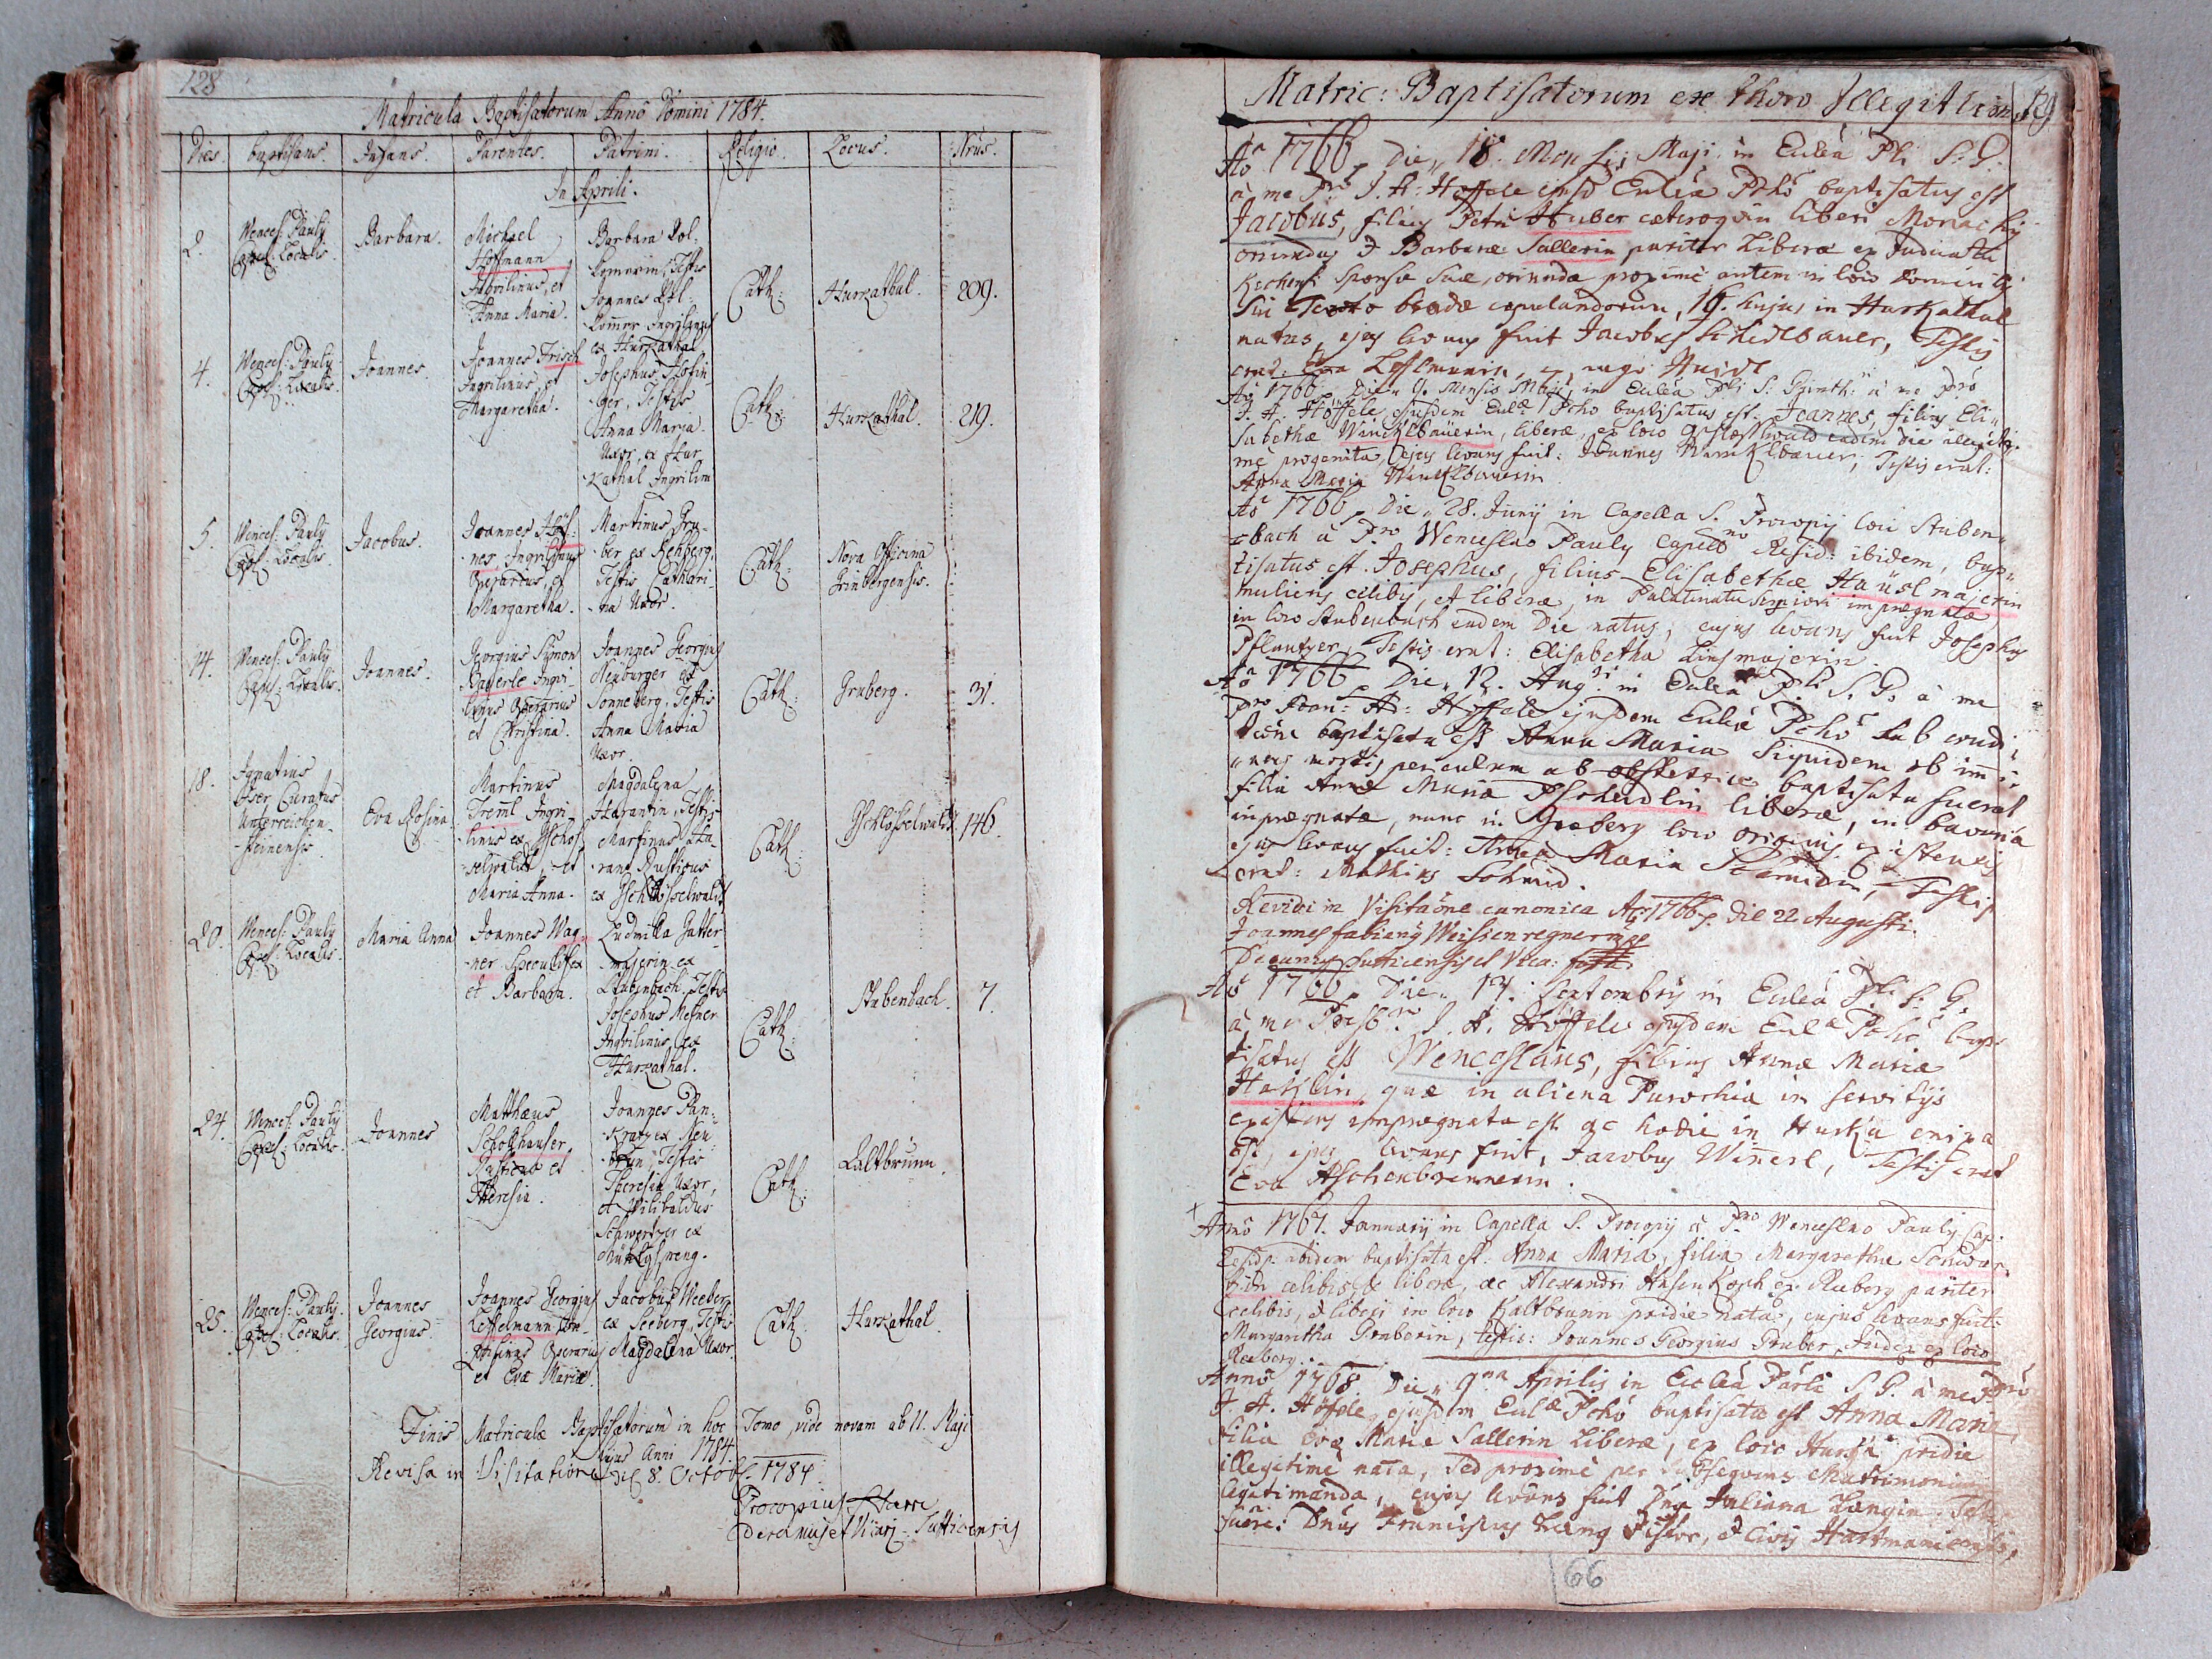 128
Matricula Baptisatorum Anno Domini 1784.
Dies. baptisans. Infans. Parentes. Patrini. Religio. Locus. Nrus.
In Aprili.
2.
Wences: Pauly
Capel: Localis.
Barbara.
Michael
Hoffmann
Inqvilinus, et
Anna Maria.
Barbara Kol-
Testis
Joannes Kol-
Inqvilinus
ex Hurkathal
Cath:
Hurkathal.
209.
4.
Wences: Pauly
Capel: Localis.
Joannes.
Joannes Frisch
Inqvilinus, et
Margaretha.
Josephus
ger, Testis
Anna Maria
Uxor, ex Hur
Kathal Inqvilini
Cath:
Hurkathal.
219.
5.
Wences: Pauly
Capel: Localis.
Jacobus.
Joannes
ner Inqvilinus
Operarius, et
Margaretha.
Martinus Gru-
ber ex Rehberg,
Testis Cathari-
na Uxor.
Cath:
Nova Officina
Grünbergensis.
14.
Wences: Pauly
Capel: Localis.
Joannes.
Georgius Symon
Bayerle Inqvi-
linus Operarius
et Christina.
Joannes Georgius
Neüburger ex
Sonneberg, Testis
Anna Maria
Uxor.
Cath:
Gruberg.
31.
18.
Ignatius
Oser Curatus
Unterreichen-
steinensis.
Eva Rosina
Martinus
Treml Inqvi-
linus ex Gschlos-
selwald, et
Maria Anna.
Magdalena
Harantin, Testis
Martinus Ha-
rant Rusticus
ex Gschlösselwald
Cath:
Gschlösselwald.
146.
20.
Wences: Pauly
Capel: Localis.
Maria Anna
Joannes Wag-
ner Speculifex
et Barbara.
Ludmilla Gatter-
majerin ex
Stubenbach. Testis
Josephus Mesner
Inqvilinus ex
Hurkathal.
Cath:
Stubenbach.
7.
24.
Wences: Pauly
Capel: Localis.
Joannes
Matthæus
Scholzhauser
Rusticus et
Theresia.
Joannes Pan-
kratz ex Neu-
brun, Testis
Theresia Uxor,
et Wilibaldus
Schwertzer ex
Cath:
Kaltbrunn.
25.
Wences: Pauly.
Capel: Localis.
Joannes
Georgius.
Joannes Georgius
Leffelmann
Operarius
et Eva Maria.
Jacobus Weeber
ex Seeberg, Testis
Magdalena Uxor.
Cath:
Hurkathal.
Finis Matriculæ Baptisatorum in hoc Tomo, vide novam ab 11. Maji
hujus Anni 1784.
Revisa in Visitatione Die 8. Octob. 1784.
Procopius
Decanus et Vicarj: Sutticensis
Matric: Baptisatorum ex thoro Illegitimo 129
Aõ 1766. Die 18. Mensis Maji in Eccleâ Pli S. G.
à me Pro J. A. Höffele ejusd Eccleæ Pcho baptisatus est
Jacobus, filius Petri Huber cæteroqvin liberi Monachij
oriundus & Barbaræ Sallerin pariter Liberæ ex Judicatu
Sponsæ suæ, oriundæ proxime autem in loco
copulandorum, 16. hujus in Hurkathal
natus, ejus levans fuit Jacobus Schedlbauer, Testis
erat: Eva Leffelmanin,
Aõ 1766. Die 9. Mensis Maji in Eccleâ Pli S. Gunth: à me Pro
J. A. Höffele ejusdem Eccl Pcho baptisatus est Joannes, filius Eli-
sabethæ Wincklbauerin, liberæ, ex loco Gschlösslwald eadem die illegiti-
me progenitæ, ejus levans fuit: Joannes Wincklbauer, Testis erat:
Anna Maria Wincklbauerin
Aõ 1766. Die 28. Junij in Capella S. Procopij loci Stuben-
bach à Pro Wenceslao Pauly Capello Resid: ibidem, bap-
tisatus est Josephus, filius Elisabethæ Haüslmajerin
mulieris cælibis, et liberæ, in Palatinatu superiori imprægnatæ
in loco Stubenbach eadem die natus, cujus levans fuit Josephus
Pflantzer, Testis erat: Elisabetha Linsmajerin.
Aõ 1766. Die 12. Aug: in Eccleâ Pli S. G. à me
Pro Joan: A: Höffele ejusdem Eccleæ Pcho sub condi-
tione baptisata est Anna Maria siquidem ob immi-
nens mortis periculum ab obstetrice baptisata fuerat
filia Annæ Mariæ Pscheidlin liberæ, in Bavaria
imprægnatæ, nunc in Gruberg loco originis existentis
ejus levans fuit: Anna Maria Schmidin, Testis
erat: Mathias Schmid.
Revidi in Visitaõne canonica Aõ 1766. Die 22 Augusti.
Joannes Fabianus Weissenregner mpe
Decanus Sutticensis et Vica: for:
Aõ 1766. Die 17. Septembris in Eccleâ Pli S. G.
à me Presb. J. A. Höffele ejusdem Eccl Pcho bap-
tisatus est Wenceslaus, filius Annæ Mariæ
Haklin, quæ in aliena Parochia in servitijs
existens imprægnata est ac hodie in Hurka enixa
est, ejus levans fuit, Jacobus Winerl, Testis erat
Eva Aschenbrennerin.
Anno 1767. Januarij in Capella S. Procopij à Pro Wenceslao Pauly Cap:
Resid: ibidem baptisata est Anna Maria, filia Margarethæ
cælibis, & liberæ, ac Alexandri Hasenkopf ex Rehberg pariter
cælibis, & liberi in loco Kaltbrunn pridie nata, cujus levans fuit:
Margaritha Gruberin, testis: Joannes Georgius Gruber, Judex ex loco
Rehberg.
Anno 1768. Die 9na Aprilis in Eccleâ Parli S. G. à me Pro
J. A. Höffele ejusdem Eccl Pcho baptisata est Anna Maria,
filia Evæ Mariæ Sallerin Liberæ, ex loco Hurka pridie
illegitime nata, sed proxime per subsequens Matrimonium
legitimanda, cujus levans fuit Dna Juliana Langin, Testis
fuere: Dnus Franciscus Lang Pistor, et Civis Hartmanicensis,
66